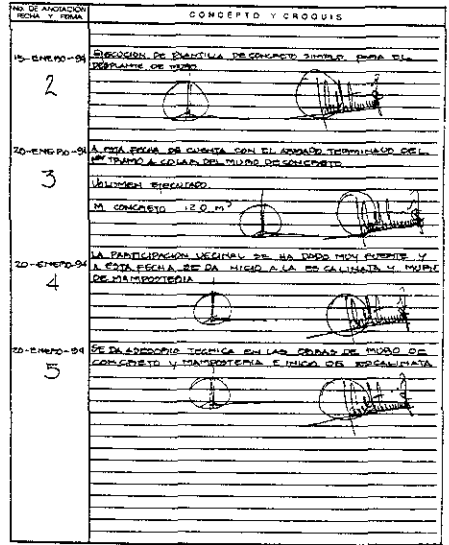 NO. DE ANOTACION
FECHA Y FIRMA
CONCEPTO Y CROQUIS
15-ENERO-94
2
EJECUCION DE PLANTILLA DE CONCRETO SIMPLE PARA EL
DESPLANTE DE MURO
20-ENERO-94
3
A ESTA FECHA SE CUENTA CON EL ARMADO TERMINADO DEL
TRAMO A COLAR DEL MURO DE CONCRETO
VOLUMEN EJECUTADO
M CONCRETO 12.0 M³
20-ENERO-94
4
LA PARTICIPACION VECINAL SE HA DADO MUY FUERTE Y
A ESTA FECHA SE DA INICIO A LA ESCALINATA Y MURO
DE MAMPOSTERIA
20-ENERO-94
5
SE DA ASESORIA TECNICA EN LAS OBRAS DE MURO DE
CONCRETO Y MAMPOSTERIA E INICIO DE ESCALINATA